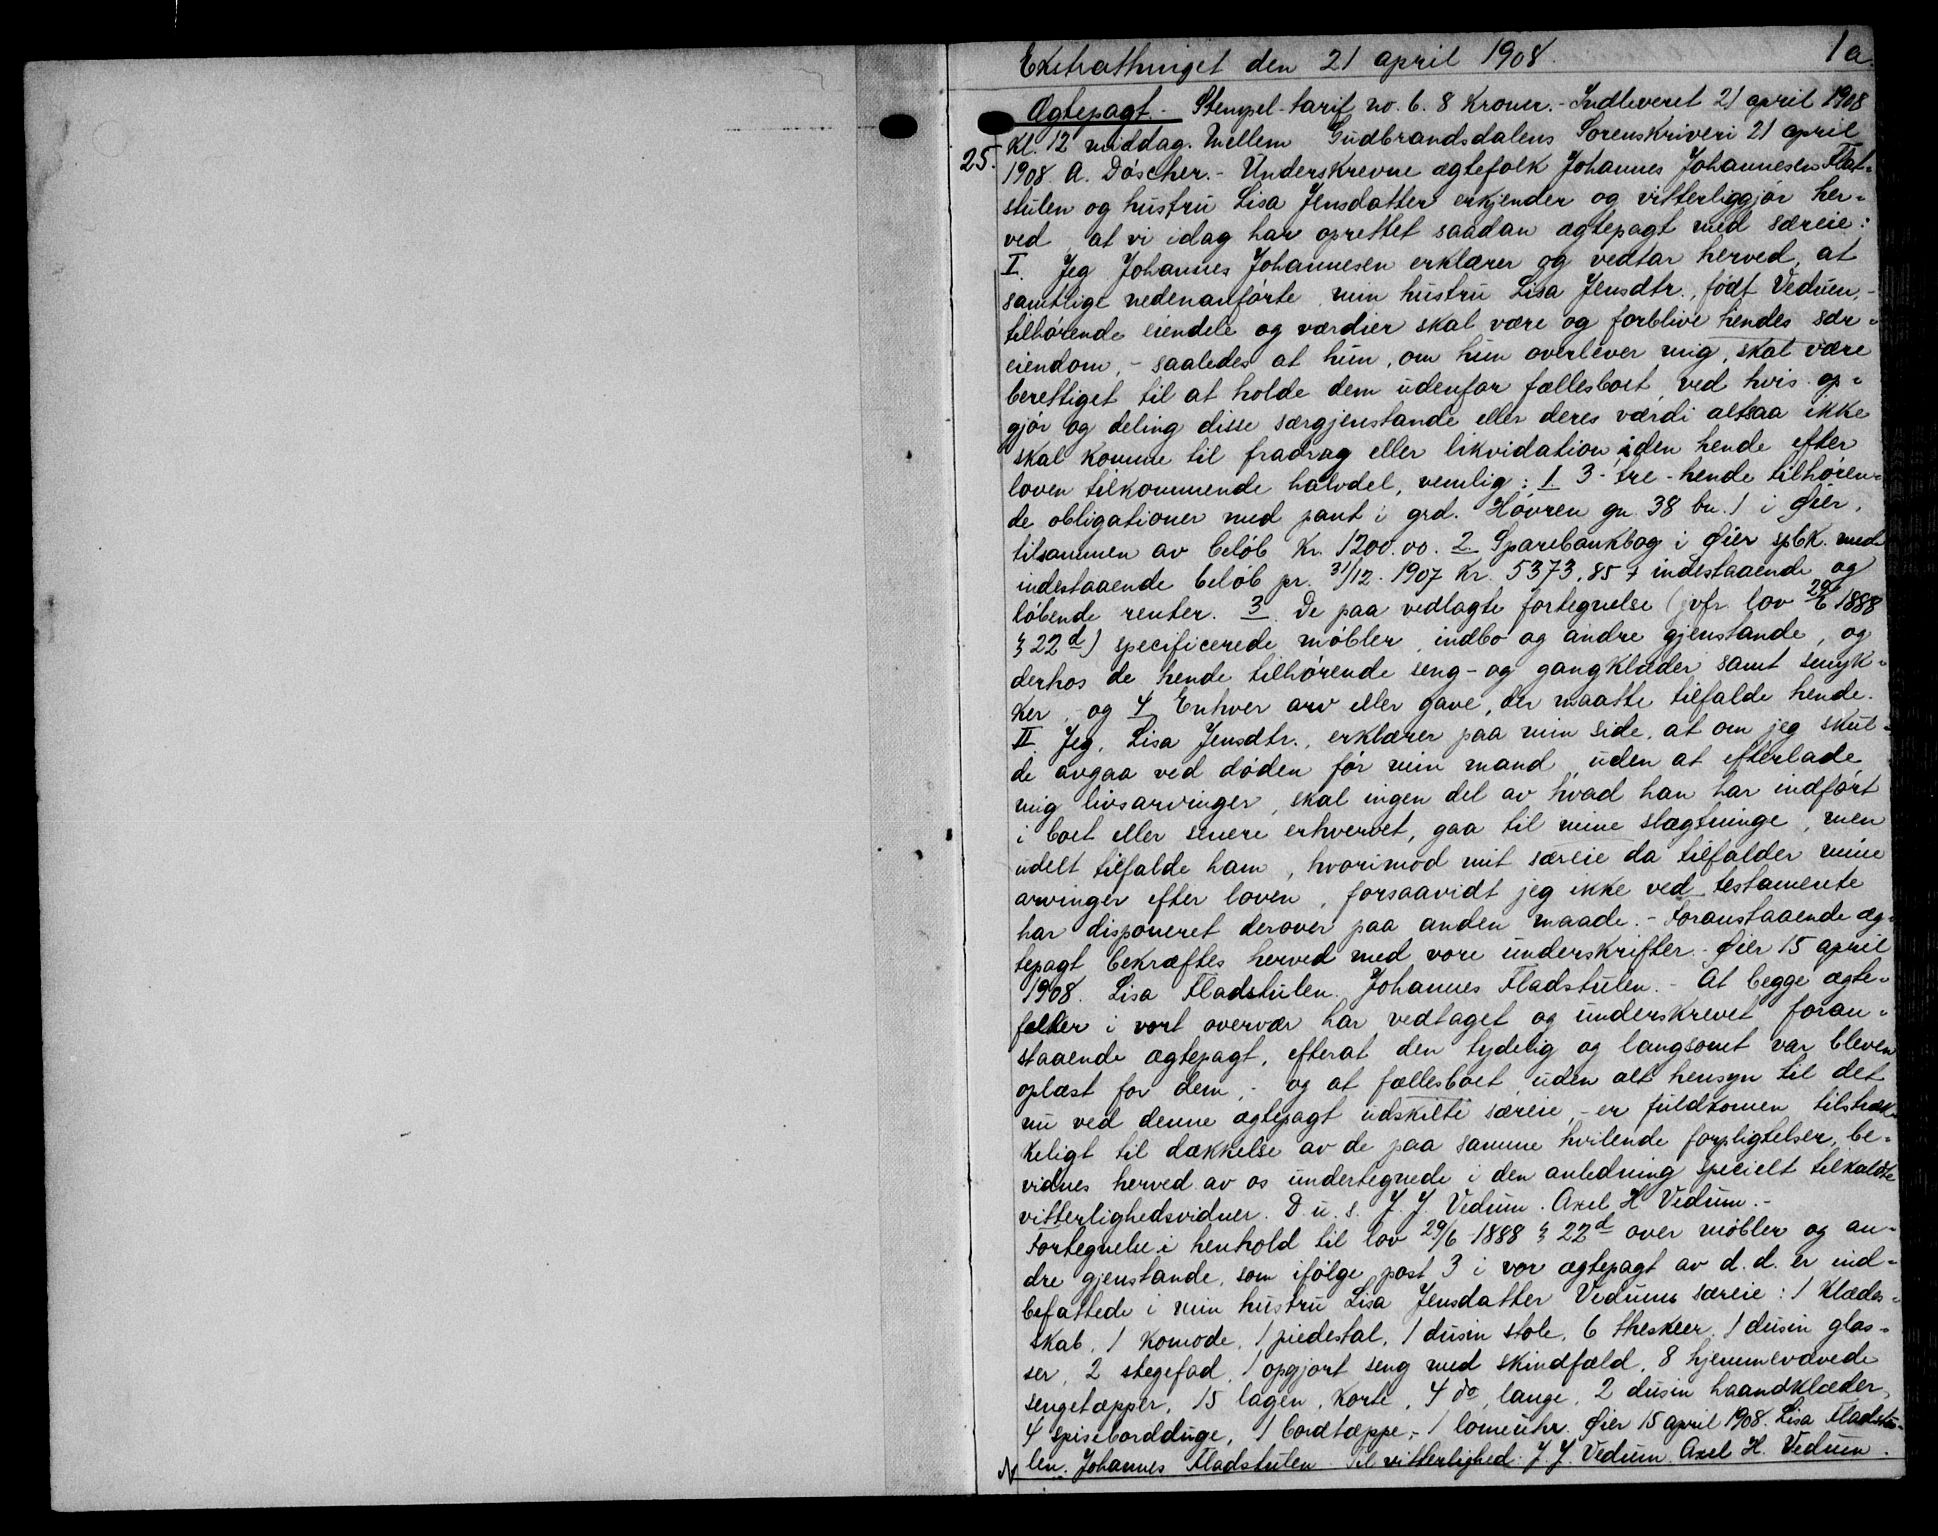 Extrathinget den 21 april 1908. 1a.
Ægtepagt. - Stempel-tarif no. 6. 8 Kroner. - Indleveret 21 april 1908
Kl. 12 middag. Mellem Gudbrandsdalens Sorenskriveri 21 april
25. 1908. A. Döscher. - Underskrevne ægtefolk Johannes Johannesen Flat-
stulen og hustru Lisa Jensdatter erkjender og vitterliggjør her-
ved, at vi idag har oprettet saadan ægtepagt med særeie:
I. Jeg Johannes Johannesen erklærer og vedtar herved, at
samtlige nedenanførte, min hustru Lisa Jensdtr., født Vedum, -
tilhørende eiendele og værdier skal være og forblive hendes sær-
eiendom, - saaledes at hun, om hun overlever mig, skal være
berettiget til at holde dem udenfor fællesboet, ved hvis op-
gjør og deling disse særgjenstande eller deres værdi altsaa ikke
skal komme til fradrag eller likvidation i den hende efter
loven tilkommende halvdel, nemlig: 1 3 - tre - hende tilhøren-
de obligationer med pant i grd. Hovren gn. 38 bn. 1 i Øier,
tilsammen av beløb Kr. 1200.00. 2. Sparebankbog i Øier spbk. med
indestaaende beløb pr. 31/12. 1907 Kr. 5373,85 + indestaaende og
løbende renter. 3. De paa vedlagte fortegnelse (jvfr. lov 29/6 1888
§ 22 d) specificerede møbler, indbo og andre gjenstande, og
derhos de hende tilhørende seng- og gangklæder samt smyk-
ker, og 4 Enhver arv eller gave, der maatte tilfalde hende.
II. Jeg, Lisa Jensdtr., erklærer paa min side, at om jeg skul-
de avgaa ved døden før min mand, uden at efterlade
mig livsarvinger, skal ingen del av hvad han har indført
i boet eller senere erhvervet, gaa til mine slægtninge, men
udelt tilfalde ham, hvorimod mit særeie da tilfalder mine
arvinger efter loven, forsaavidt jeg ikke ved testamente
har disponeret derover paa anden maade. - Foranstaaende æg-
tepagt bekræftes herved med vore underskrifter. Øier 15 april
1908. Lisa Fladstulen. Johannes Fladstulen. - At begge ægte-
feller i vort overvær har vedtaget og underskrevet foran-
staaende ægtepagt, efterat den tydelig og langsomt var bleven
oplæst for dem, - og at fællesboet, uden alt hensyn til det
nu ved denne ægtepagt udskilte særeie, - er fuldkomen tilstræk-
keligt til dækkelse av de paa samme hvilende forpligtelser, be-
vidnes herved av os undertegnede i den anledning specielt tilkaldte
vitterlighedsvidner. D. u. s. J. J. Vedum. Axel H Vedum. -
Fortegnelse i henhold til lov 29/6 1888 § 22 d over møbler og an-
dre gjenstande, som ifølge post 3 i vor ægtepagt av d. d. er ind-
befattede i min hustru Lisa Jensdatter Vedums særeie: 1 Klædes-
skab, 1 Komode, 1 piedestal, 1 dusin stole, 6 theskeer, 1 dusin glas-
ser, 2 stegefad, 1 opgjort seng med skindfæld, 8 hjemmevævede
sengetæpper, 15 lagen, korte, 4 do, lange, 2 dusin haandklæder,
4 spiseborddúge, 1 bordtæppe, - 1 lomeuhr. Øier 15 april 1908. Lisa Fladstu-
len. Johannes Fladstulen. Til vitterlighed: J J. Vedum. Axel H. Vedum.